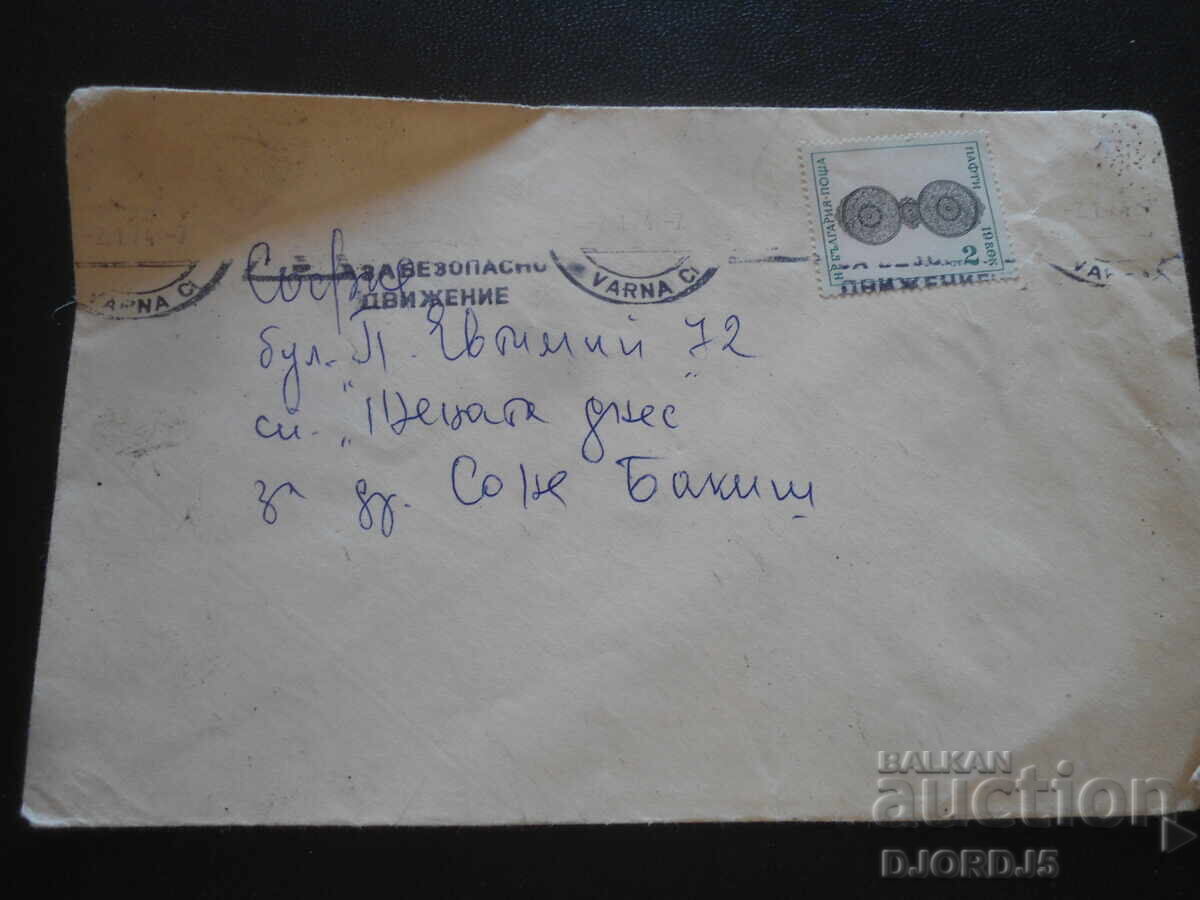 НР БЪЛГАРИЯ·ПОЩА
ПАФТИ
19в.
2
VARNA
ЗА БЕЗОПАСНО
ДВИЖЕНИЕ
VARNA
ДВИЖЕНИЕ
София
бул. "П. Евтимий" 72
сп. "Жената днес"
за др. Соня Бакиш
BALKAN
auction
DJORDJ5